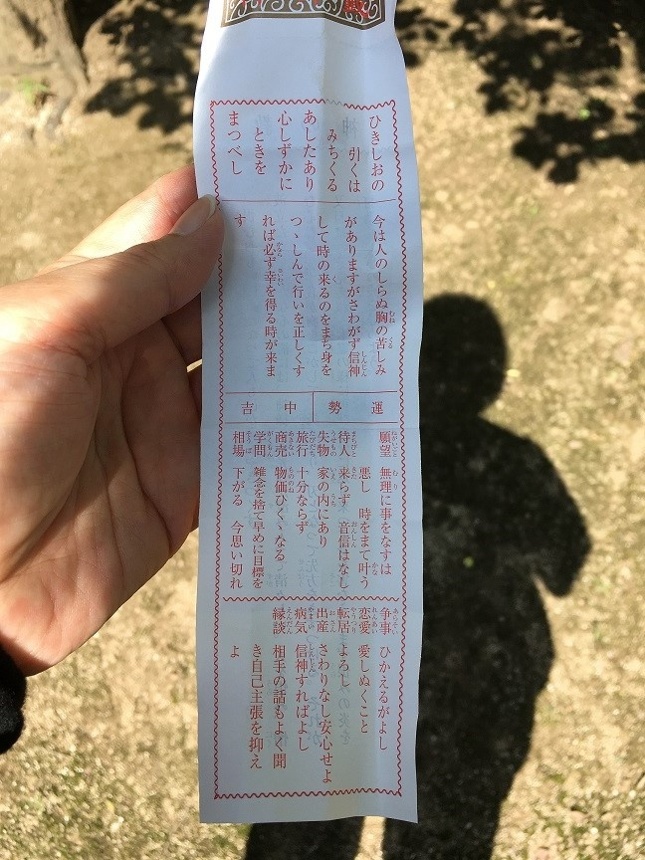 ひきしおの
引くは
みちくる
あしたあり
心しずかに
ときを
まつべし
今は人のしらぬ胸の苦しみ
がありますがさわがず信神
して時の来るのをまち身を
つゝしんで行いを正しくす
れば必ず幸を得る時が来ま
す
運勢
中吉
願望 無理に事をなすは
悪し 時をまて叶う
待人 来らず 音信はなし
失物 家の内にあり
旅行 十分ならず
商売 物価ひくゝなる
学問 雑念を捨て早めに目標を
相場 下がる 今思い切れ
争事 ひかえるがよし
恋愛 愛しぬくこと
転居 よろし
出産 さわりなし安心せよ
病気 信神すればよし
縁談 相手の話もよく聞
き自己主張を抑え
よ